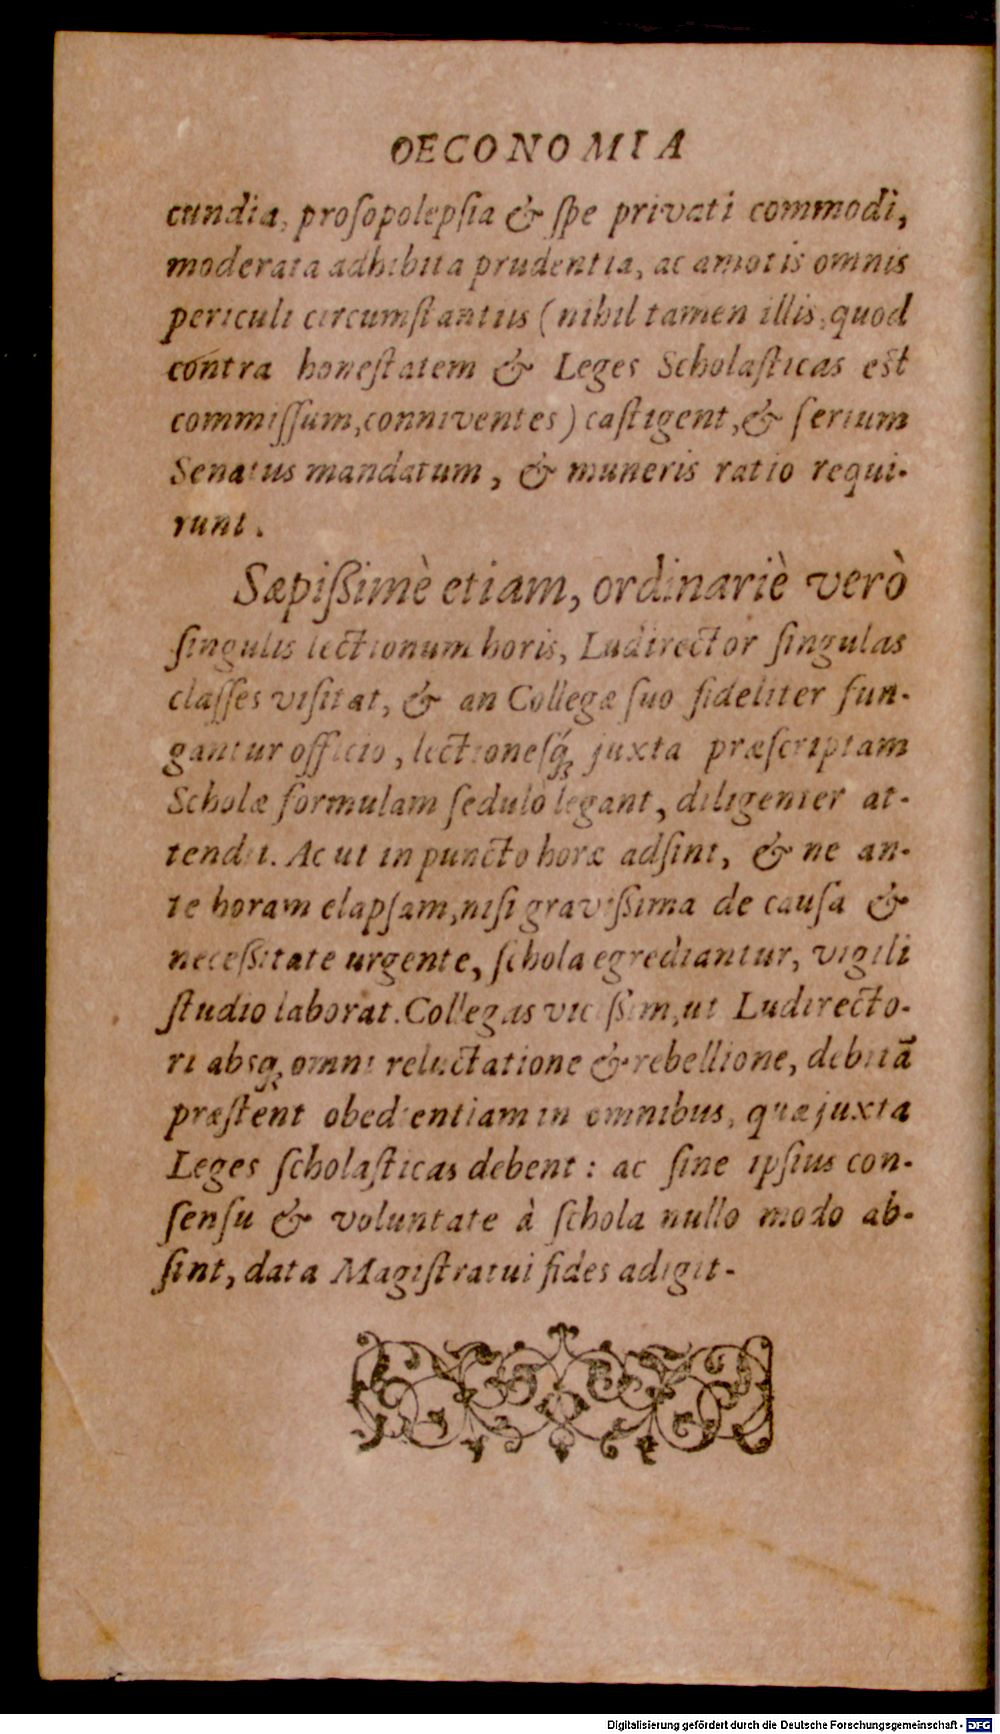 OECONOMIA
cundia, proſopolepſia & ſpe privati commodi,
moderata adhibita prudentia, ac amotis omnis
periculi circumſtantiis (nihil tamen illis, quod
contra honeſtatem & Leges Scholaſticas eſt
commiſſum, conniventes) caſtigent, & ſerium
Senatus mandatum, & muneris ratio requi-
runt.
Sæpiſſimè etiam, ordinariè verò
ſingulis lectionum horis, Ludirector ſingulas
claſſes viſitat, & an Collegæ ſuo fideliter fun-
gantur officio, lectioneſq́ꝫ juxta præſcriptam
Scholæ formulam ſedulò legant, diligenter at-
tendit. Ac ut in puncto horæ adſint, & ne an-
te horam elapſam, niſi graviſſima de cauſa &
neceſſitate urgente, ſchola egrediantur, vigili
ſtudio laborat. Collegas viciſſim, ut Ludirecto-
ri absqꝫ omni reluctatione & rebellione, debitã
præſtent obedientiam in omnibus, quæ juxta
Leges ſcholaſticas debent: ac ſine ipſius con-
ſenſu & voluntate à ſchola nullo modo ab-
ſint, data Magiſtratui fides adigit.
Digitalisierung gefördert durch die Deutsche Forschungsgemeinschaft - DFG